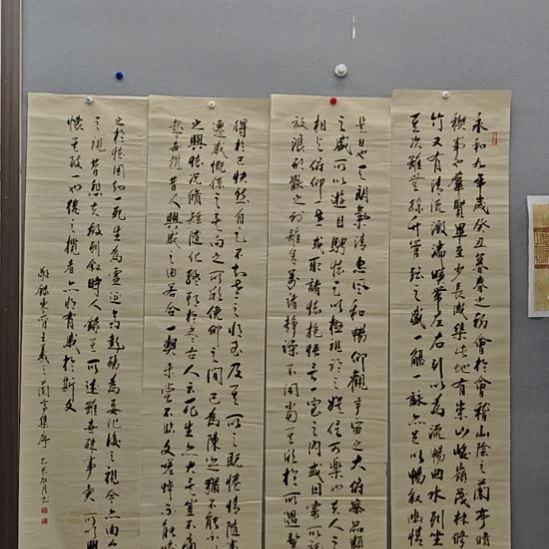 永和九年歲癸丑暮春之初會於會稽山陰之蘭亭脩
禊事也羣賢畢至少長咸集此地有崇山峻嶺茂林脩
竹又有清流激湍映帶左右引以為流觴曲水列坐
其次雖無絲竹管弦之盛一觴一詠亦足以暢敘幽情
是日也天朗氣清惠風和暢仰觀宇宙之大俯察品類
之盛可以遊目騁懷足以極視聽之娛信可樂也夫人之
相與俯仰一世或取諸懷抱悟言一室之内或因寄所託
放浪形骸之外雖萬殊靜躁不同當其欣於所遇暫
得於己快然自足不知老之將至及其所之既惓情隨事
遷感慨係之矣向之所欣俛仰之間已為陳迹猶不能不以
之興懷況脩短隨化終期於盡古人云死生亦大矣豈不痛
哉每攬昔人興感之由若合一契未嘗不臨文嗟悼不能喻
之於懷固知一死生為虛誕齊彭殤為妄作後之視今亦由
之視昔悲夫故列敘時人錄其所述雖世殊事異所以興
懷其致一也後之攬者亦將有感於斯文
敬錄書聖王羲之蘭亭集序